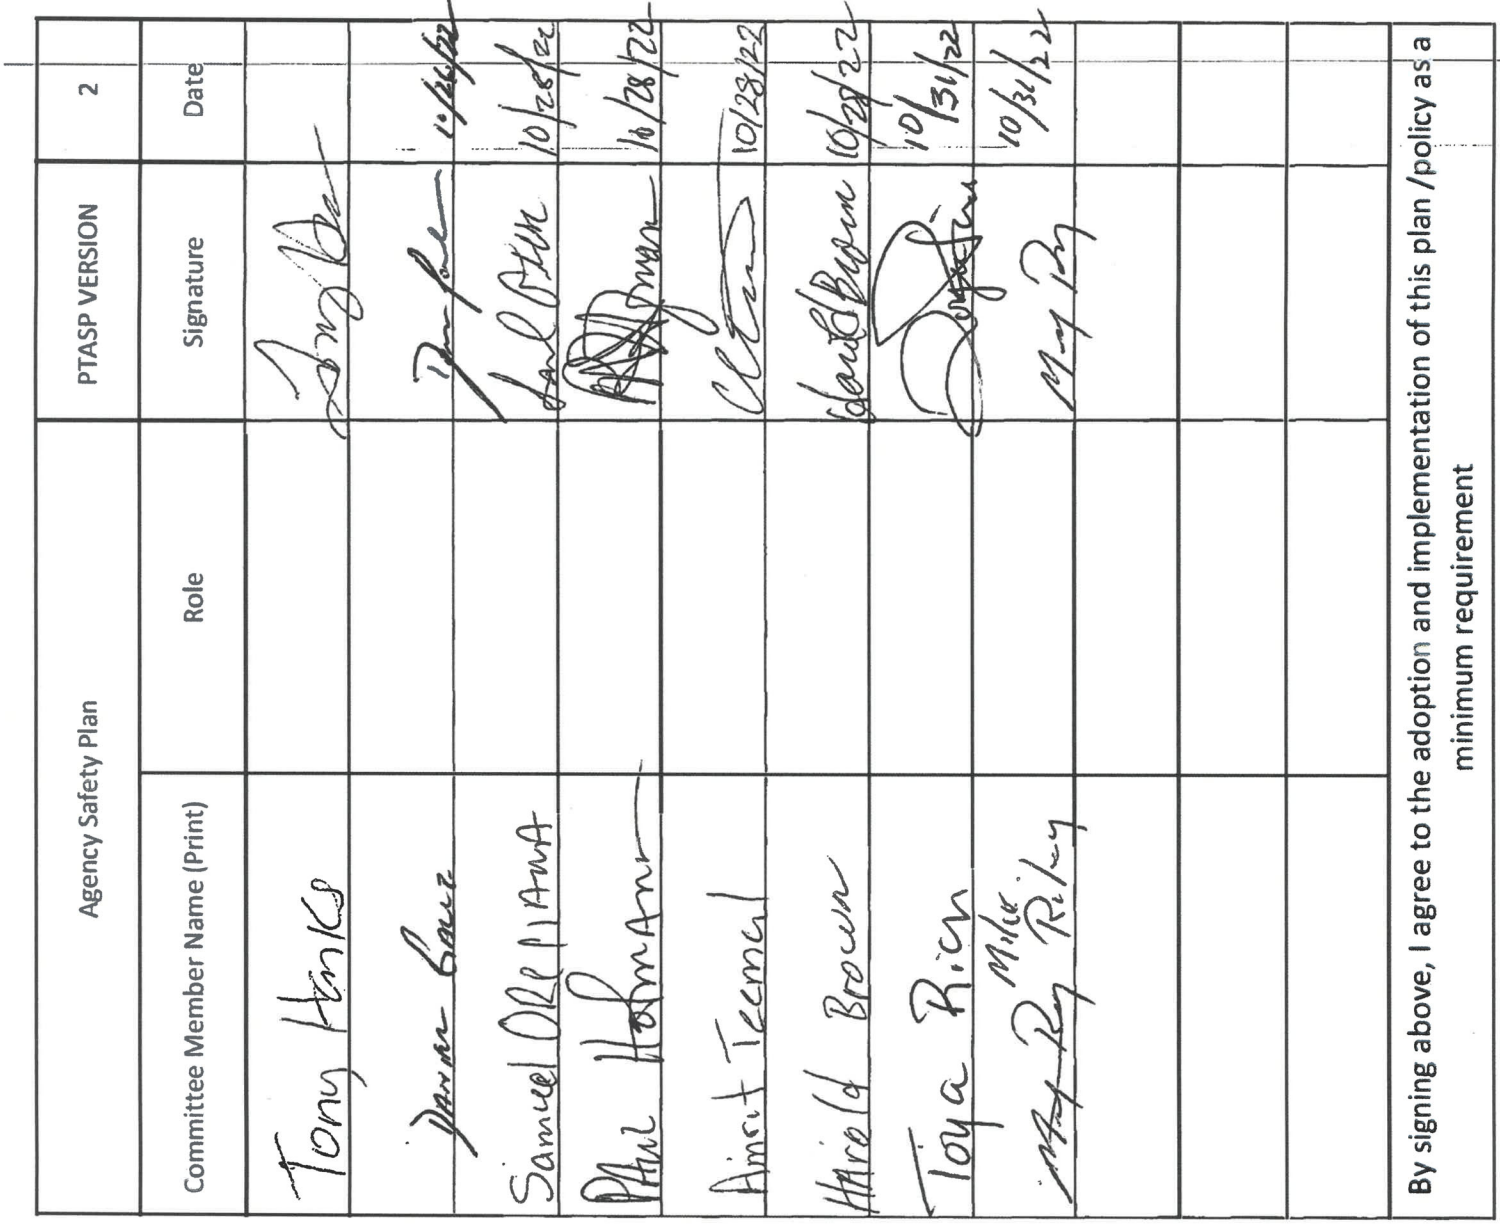 Agency Safety Plan PTASP VERSION 2
Committee Member Name (Print) Role Signature Date
Tony Hanks
10/26/22
Samuel ORPIANA 10/28/22
PAul HofmAnn 10/28/22
Amrit Teemal 10/28/22
HArold Brown Harold Brown 10/28/22
Toya Rich 10/31/22
Mike
Riley 10/31/22
By signing above, I agree to the adoption and implementation of this plan /policy as a
minimum requirement